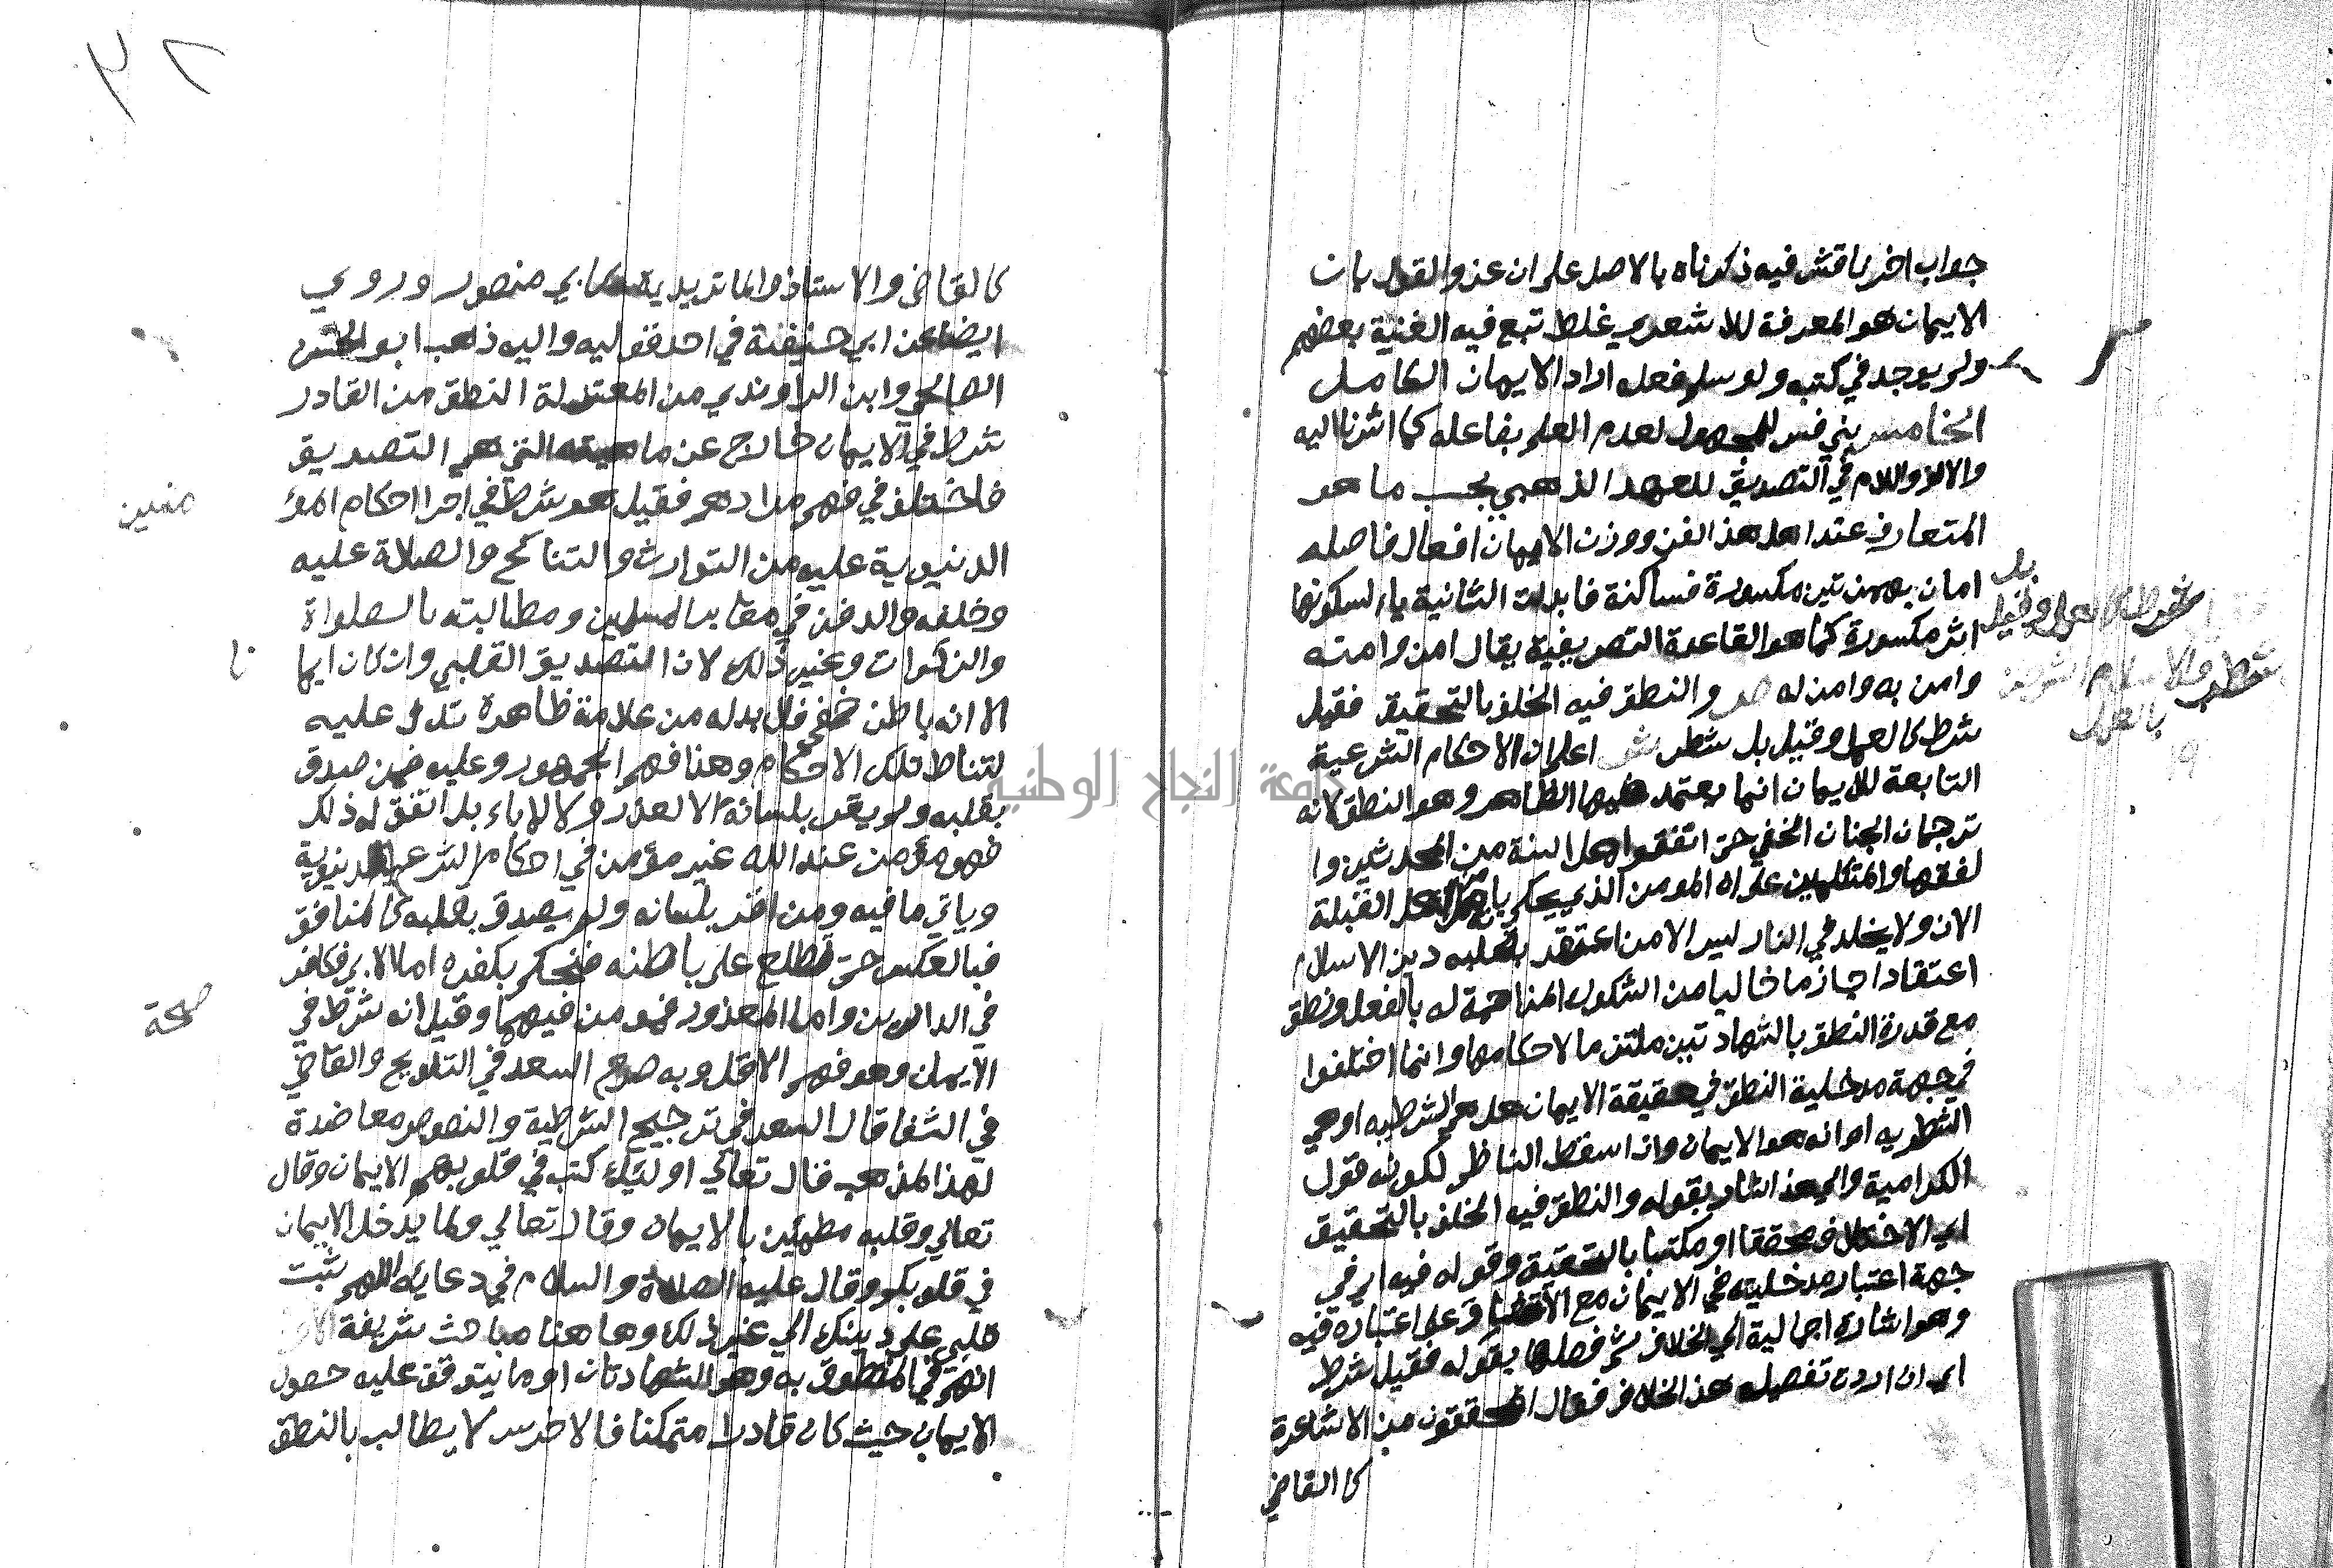 جواب اخر ناقش فيه ذكرناه بالاصل علي ان عزو القول بان
الايمان هو المعرفة للاشعري غلط تبع فيه الغنية بعضهم
ولم يوجد في كتبه ولو سلم فعله اراد الايمان الكامل
الخامس بني فسر للمجهول لعدم العلم بفاعله كما اشرنا اليه
والالف واللام في التصديق للعهد الذهبي بحسب ما هو
المتعارف عند اهل هذا الفن ووزن الايمان افعال فاصله
امان بهمزتين مكسورة فساكنة فابدلت الثانية ياء لسكونها
اثر مكسورة كما هو القاعدة التصريفية يقال امن وامنه
وامن به وامن له ص والنطق فيه الخلف بالتحقيق فقيل
شرط كالعمل وقيل بل شطر ش اعلم ان الاحكام الشرعية
التابعة للايمان انما يعتمد فيها الظاهر وهو النطق لانه
ترجمان الجنان الخفي حتي اتفقوا اهل السنة من المحدثين وا
لفقها والمتكلمين علي ان المومن الذي يحكم بانه من اهل القبلة
الان ولا يخلد في النار ليس الا من اعتقد بقلبه دين الاسلام
اعتقادا جازما خاليا من الشكوك المزاحمة له بالفعل ونطق
مع قدرة النطق بالشهادتين ملتزما لاحكامها وانما اختلفوا
في جهة مدخلية النطق في حقيقة الايمان هل هي الشرطيه او هي
الشطريه او انه هو الايمان وانما اسقط الناظر لكونه قول
الكرامية والي هذا اشار بقوله والنطق فيه الخلف بالتحقيق
اي الاختلاف محققا او مكتبا بالتحقيق وقوله فيه اي في
جهة اعتبار مدخليته في الايمان مع الاتفاق علي اعتباره فيه
وهو اشارة اجمالية الي الخلاف ثم فصلها بقوله فقيل شرط
اي ان اردت تفصيل هذا الخلاف فقال المحققون من الاشاعرة
كالقاضي
بل
شرط كالعمل وقيل
شطر والاسلام اشرحن
بالعمل
٣٨
كالقاضي والاستاذ والماتريدية كابي منصور وروي
ايضا عن ابي حنيفة في احد قوليه واليه ذهب ابو الحسن
الصالحي وابن الراوندي من المعتزلة النطق من القادر
شرط في الايمان خارج عن ماهيته التي هي التصديق
فاختلف في فهم مرادهم فقيل هو شرط في اجرا احكام المؤ
منين
الدنيوية عليه من التوارث والتناكح والصلاة عليه
وخلفه والدفن في مقابر المسلمين ومطالبته بالصلواة
والزكوات وغير ذلك لان التصديق القلبي وان كان ايما
نا
الا انه باطن خفي فلا بد له من علامة ظاهرة تدل عليه
لتناط تلك الاحكام وهذا فهم الجمهور وعليه فمن صدق
بقلبه ولم يقر بلسانه لا لعذر ولا لاباء بل اتفق له ذلك
فهو مؤمن عند الله غير مؤمن في احكام الشرع الدنيوية
وياتي ما فيه ومن اقر بلسانه ولم يصدق بقلبه كالمنافق
فبالعكس حتي نطلع علي باطنه فنحكم بكفره اما الابي فكافر
في الدارين واما المعذور فمومن فيهما وقيل انه شرط في
صحة
الايمان وهو فهم الاقل وبه صرح السعد في التلويح والقاضي
في الشفا قال السعد في ترجيح الشرطية والنصوص معاضدة
لهذا المذهب قال تعالي اولئك كتب في قلوبهم الايمان وقال
تعالي وقلبه مطمئن بالايمان وقال تعالي ولما يدخل الايمان
في قلوبكم وقال عليه الصلاة والسلام في دعايه اللهم ثبت
قلبي علي دينك الي غير ذلك وها هنا مباحث شريفة
الاول في المنطوق به وهو الشهادتان او ما يتوقف عليه حصول
الايمان حيث كان قادرا متمكنا فالاخرس لا يطالب بالنطق
جامعة النجاح الوطنية